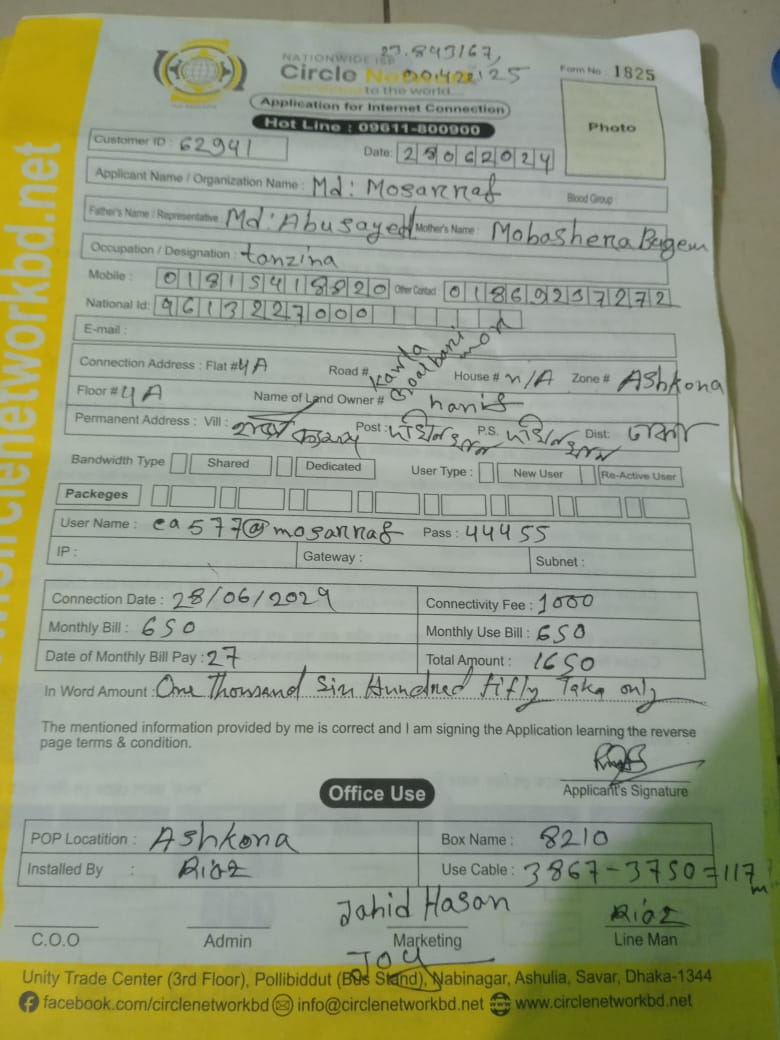 NATIONWIDE ISP 23.843167,
Circle Network
to the world...
Form No : 1825
Application for Internet Connection
Hot Line : 09611-800900
Photo
Customer ID : 62941
Date: 28062024
Applicant Name / Organization Name : Md: Mosarraf Blood Group :
Father's Name / Representative : Md: Abu sayed Mother's Name : Mobashera Bagem
Occupation / Designation : tanzina
Mobile : 01815418820 Other Contact 01869237272
National Id: 9613227000
E-mail :
Connection Address : Flat # 4A Road # Kawla mor House # n/A Zone # Ashkona
Floor # 4A Name of Land Owner # hanif
Permanent Address : Vill : Post : দক্ষিনখান P.S. দক্ষিনখান Dist: ঢাকা
Bandwidth Type Shared Dedicated User Type : New User Re-Active User
Packeges
User Name : ea577@mosarraf Pass : 44455
IP : Gateway : Subnet :
Connection Date : 28/06/2024 Connectivity Fee : 1000
Monthly Bill : 650 Monthly Use Bill : 650
Date of Monthly Bill Pay : 27 Total Amount : 1650
In Word Amount : One Thousand Six Hundred fifly Taka only
The mentioned information provided by me is correct and I am signing the Application learning the reverse
page terms & condition.
Applicant's Signature
Office Use
POP Locatition : Ashkona Box Name : 8210
Installed By : Riaz Use Cable : 3867-3750=117m
Jahid Hasan Riaz
C.O.O Admin Marketing Line Man
Joy
Unity Trade Center (3rd Floor), Pollibiddut (Bus Stand), Nabinagar, Ashulia, Savar, Dhaka-1344
facebook.com/circlenetworkbd info@circlenetworkbd.net www.circlenetworkbd.net
circlenetworkbd.net